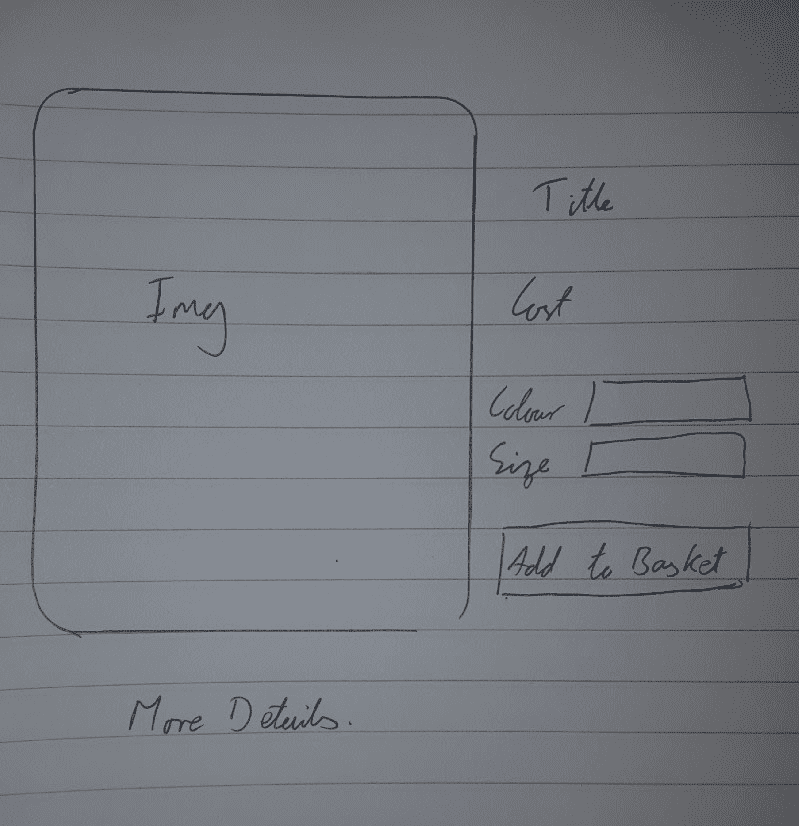 Img
Title
Cost
Colour
Size
Add to Basket
More Details.